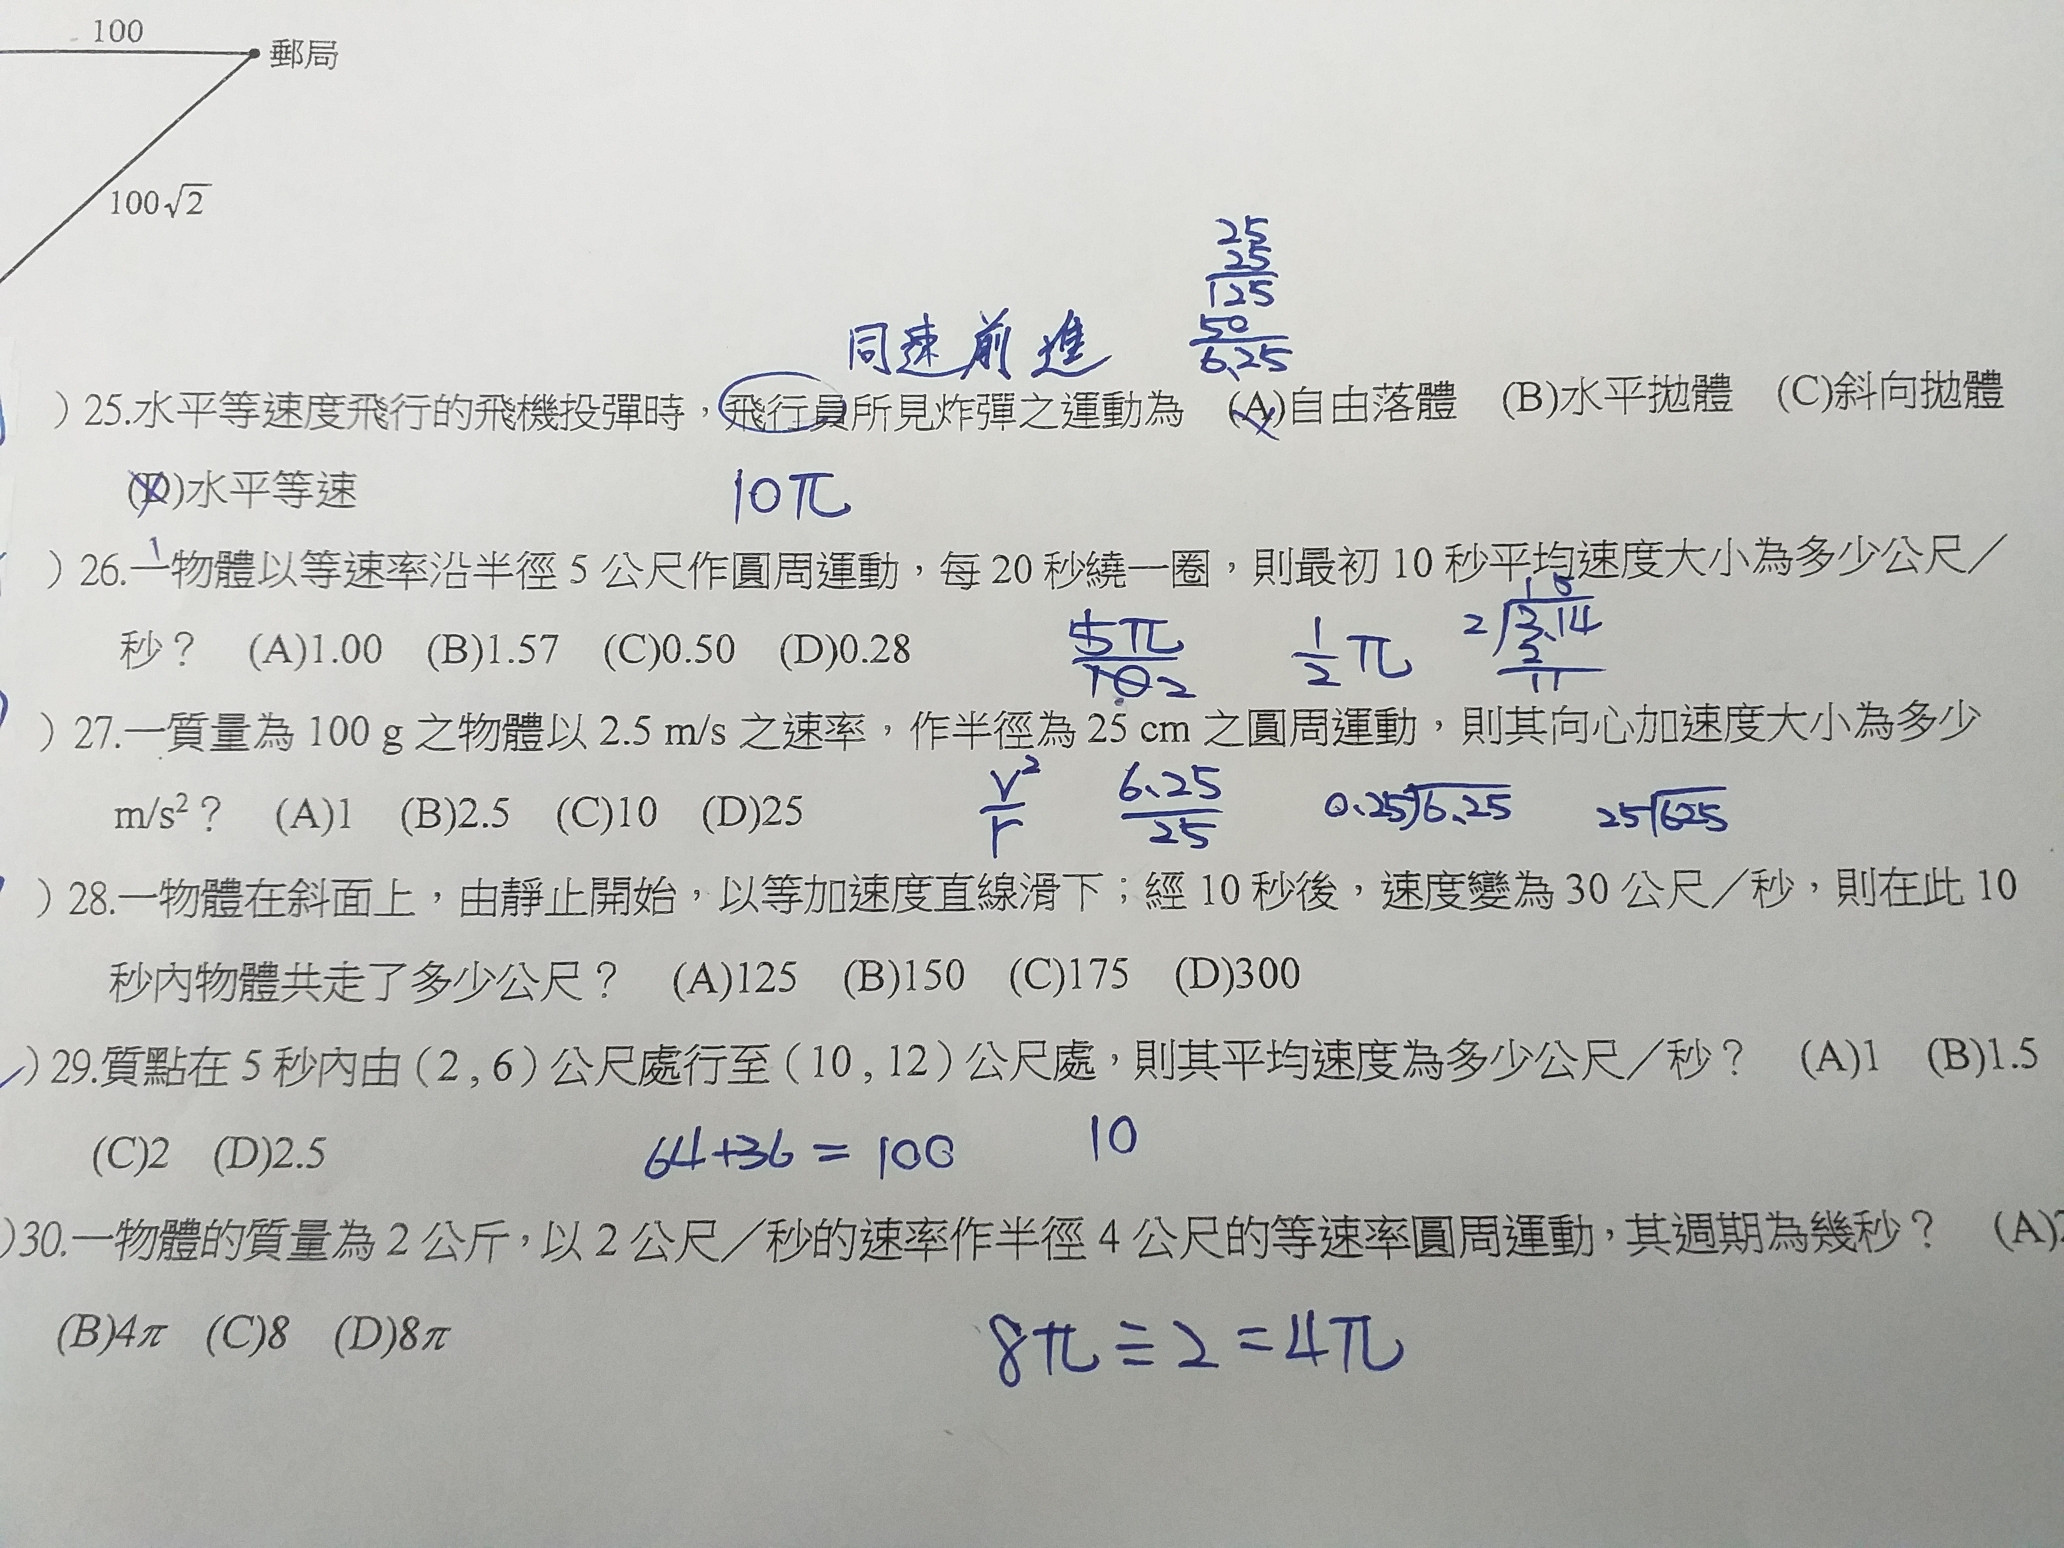 100
郵局
100√2
25
25
125
50
6.25
同速前進
)25.水平等速度飛行的飛機投彈時，飛行員所見炸彈之運動為 (A)自由落體 (B)水平拋體 (C)斜向拋體
(D)水平等速
10π
)26.一物體以等速率沿半徑 5 公尺作圓周運動，每 20 秒繞一圈，則最初 10 秒平均速度大小為多少公尺／
秒？ (A)1.00 (B)1.57 (C)0.50 (D)0.28
5π
10 2
1/2 π
2 3.14
2
11
)27.一質量為 100 g 之物體以 2.5 m/s 之速率，作半徑為 25 cm 之圓周運動，則其向心加速度大小為多少
m/s²？ (A)1 (B)2.5 (C)10 (D)25
v²/r
6.25/25
0.25)6.25
25)625
)28.一物體在斜面上，由靜止開始，以等加速度直線滑下；經 10 秒後，速度變為 30 公尺／秒，則在此 10
秒內物體共走了多少公尺？ (A)125 (B)150 (C)175 (D)300
)29.質點在 5 秒內由 ( 2 , 6 ) 公尺處行至 ( 10 , 12 ) 公尺處，則其平均速度為多少公尺／秒？ (A)1 (B)1.5
(C)2 (D)2.5
64+36 = 100
10
)30.一物體的質量為 2 公斤，以 2 公尺／秒的速率作半徑 4 公尺的等速率圓周運動，其週期為幾秒？ (A)
(B)4π (C)8 (D)8π
8π÷2=4π